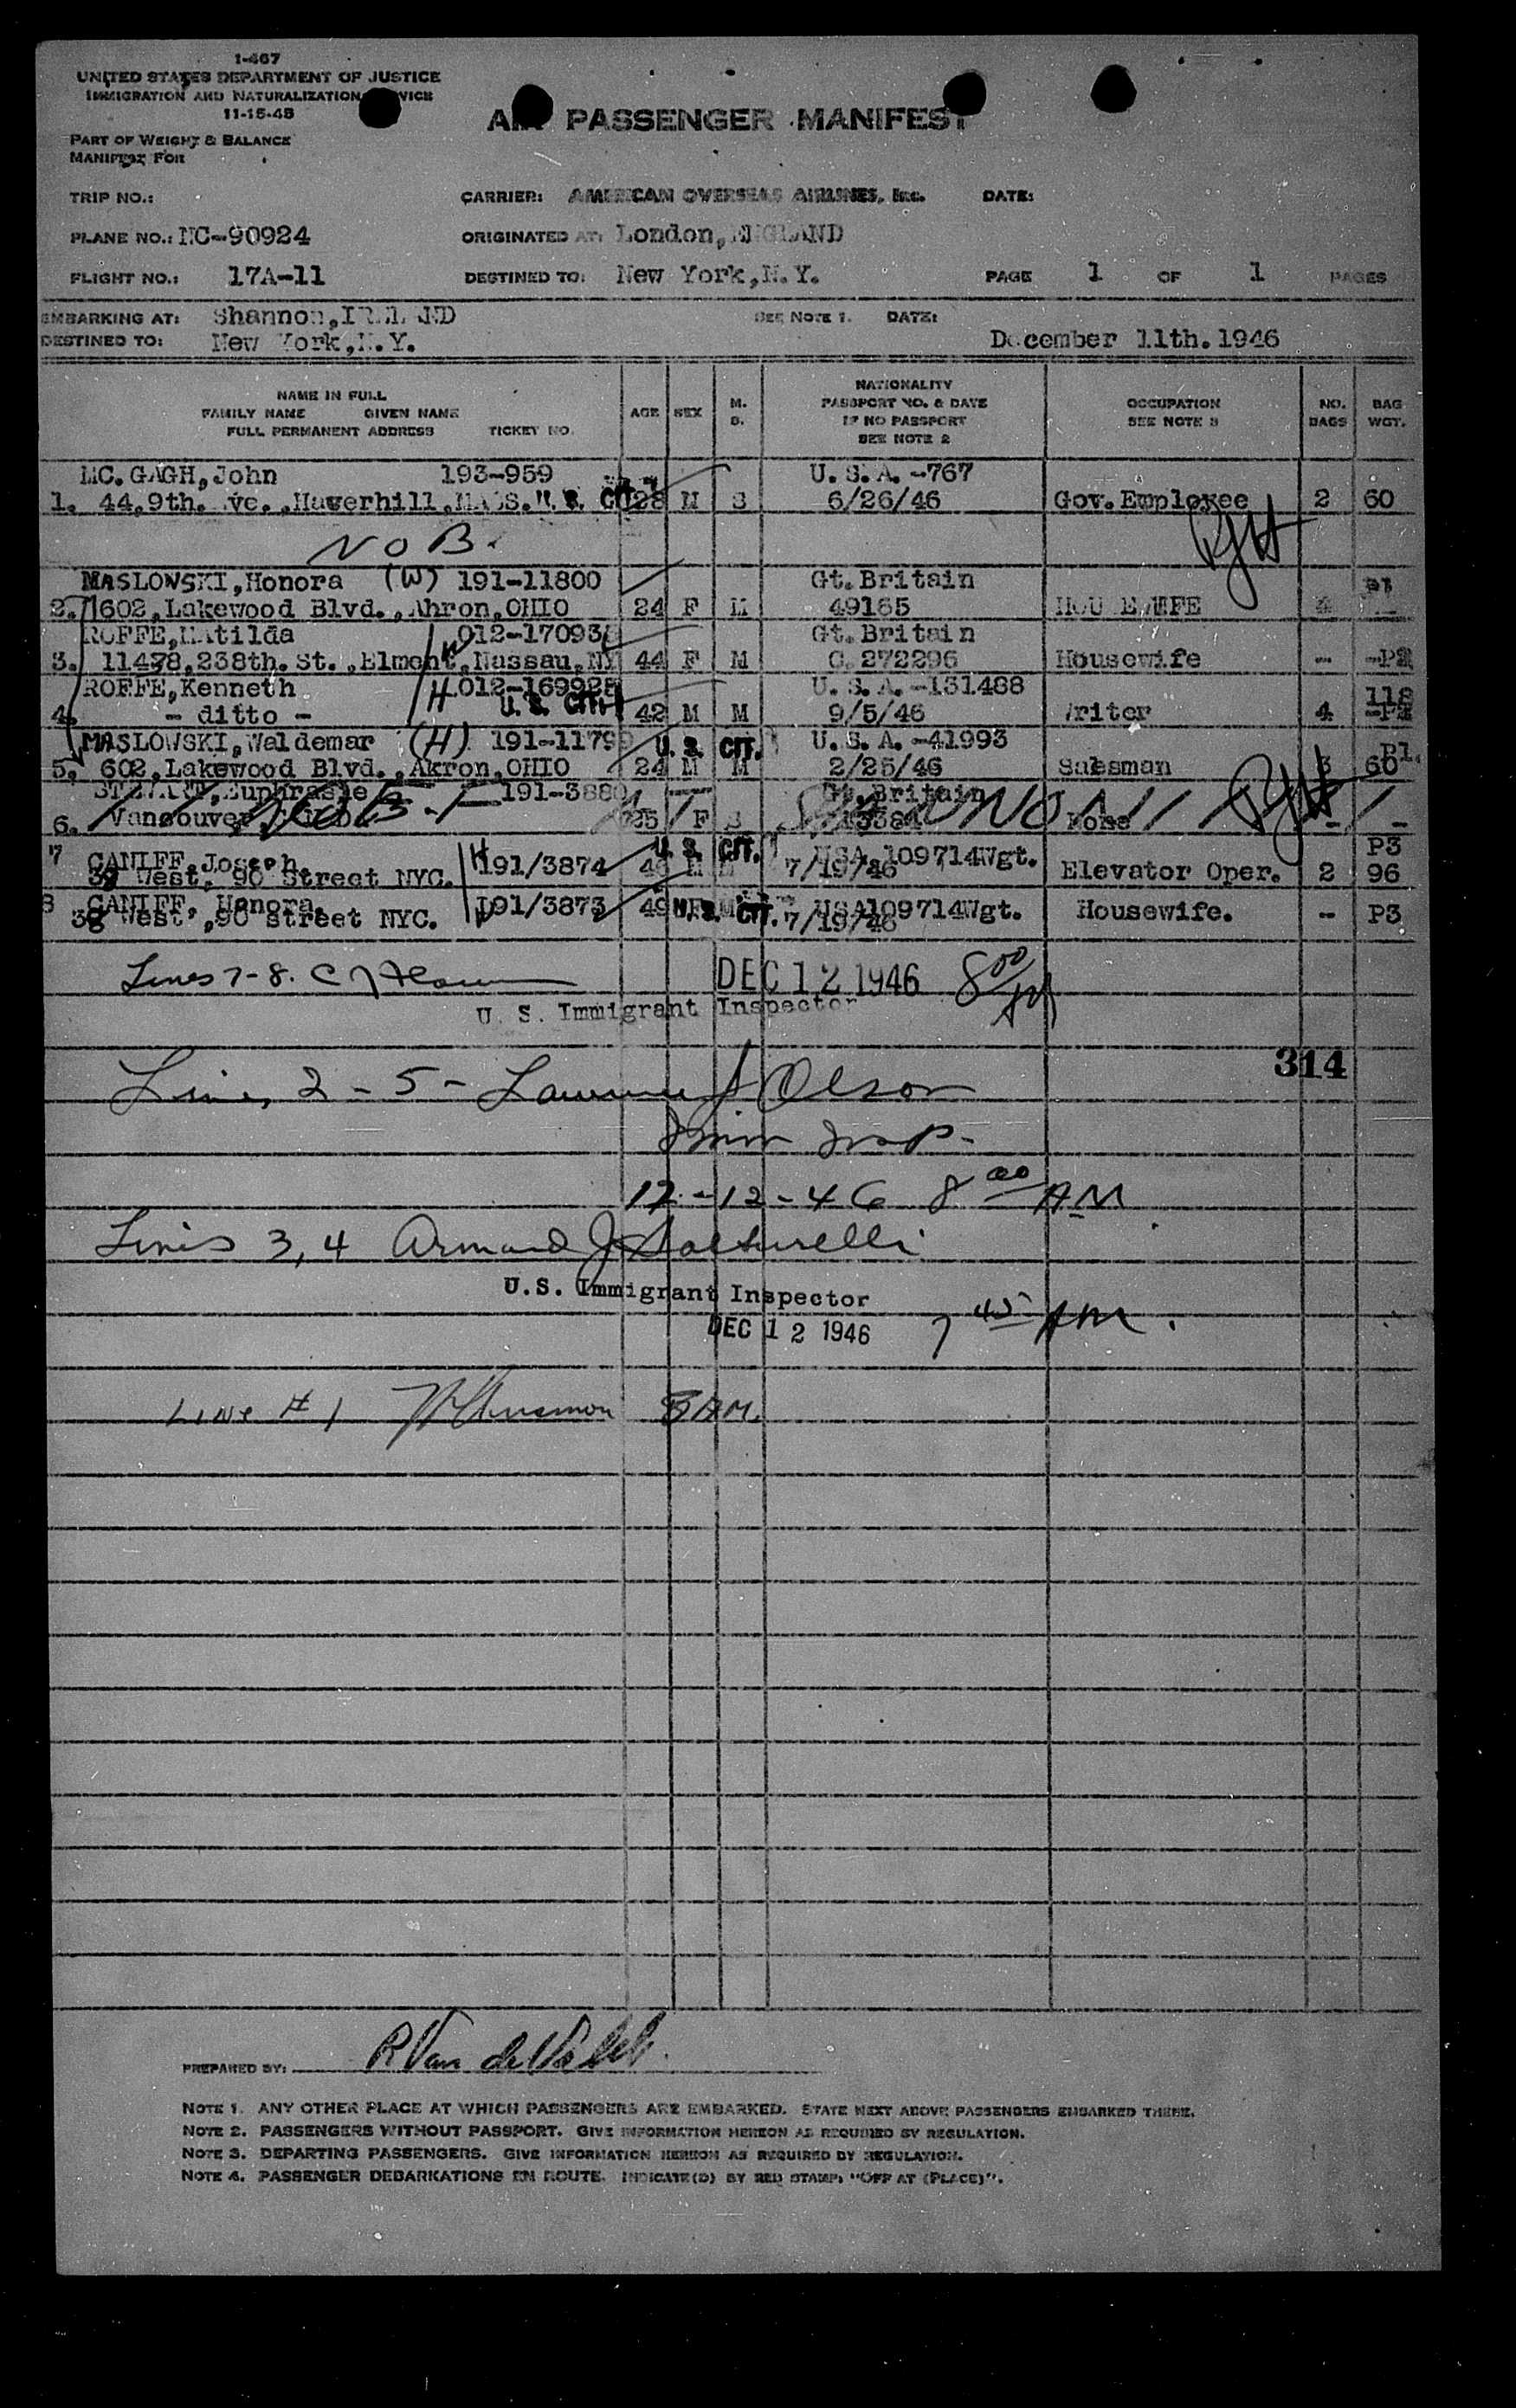 1-467
UNITED STATES DEPARTMENT OF JUSTICE
IMMIGRATION AND NATURALIZATION
11-15-45
AIR PASSENGER MANIFEST
PART OF WEIGHT & BALANCE
MANIFEST FOR
TRIP NO.: CARRIER: AMERICAN OVERSEAS AIRLINES, Inc. DATE:
PLANE NO.: NC-90924 ORIGINATED AT: London, ENGLAND
FLIGHT NO.: 17A-11 DESTINED TO: New York, N.Y. PAGE 1 OF 1 PAGES
EMBARKING AT: Shannon, IRELAND SEE NOTE 1. DATE:
DESTINED TO: New York, N.Y. December 11th. 1946
NAME IN FULL
FAMILY NAME GIVEN NAME
FULL PERMANENT ADDRESS TICKET NO.
AGE SEX M. S.
NATIONALITY
PASSPORT NO. & DATE
IF NO PASSPORT
SEE NOTE 2
OCCUPATION
SEE NOTE 3
NO. BAGS
BAG WGT.
MC. GAGH, John 193-959 U.S.A. -767
1. 44, 9th. ve., Haverhill, MASS. U.S. CIT. 28 M S 6/26/46 Gov. Employee 2 60
NOB.
MASLOWSKI, Honora (W) 191-11800 Gt. Britain
2. 1602, Lakewood Blvd., Ahron, OHIO 24 F M 49165 HOUSEWIFE
ROFFE, Matilda W 012-170938 Gt. Britain
3. 11478, 238th. St., Elmont, Nassau, NY 44 F M C. 272296 Housewife - -P2
ROFFE, Kenneth H 012-169928 U.S.A. -131488 118
4. - ditto - U.S. CIT. 42 M M 9/5/46 Writer 4 -P2
MASLOWSKI, Waldemar (H) 191-11799 U.S. CIT. U.S.A. -41993 P1.
5. 602, Lakewood Blvd., Akron, OHIO 24 M M 2/25/46 Salesman 3 60
Euphrasie 191-3880 Gt. Britain
6. Vancouver 25 F S None - -
7 CANIFF, Joseph. H 191/3874 U.S. CIT. USA 109714Wgt. P3
38 West, 90 Street NYC. 48 M M 7/19/46 Elevator Oper. 2 96
8 CANIFF, Honora. 191/3873 49 F M U.S. CIT. USA109714Wgt. Housewife. - P3
38 West, 90 street NYC. 7/19/46
Lines 7-8.
DEC 12 1946 8 00 AM
U. S. Immigrant Inspector
314
Lines 2 - 5 - Lawrence J Olson
Imm Insp-
12-12-46 8 00 AM
Lines 3, 4 Armand J.
U.S. Immigrant Inspector
DEC 12 1946 7 45 AM.
LINE # 1 8 AM.
PREPARED BY: R Van de
NOTE 1. ANY OTHER PLACE AT WHICH PASSENGERS ARE EMBARKED. STATE NEXT ABOVE PASSENGERS EMBARKED THERE.
NOTE 2. PASSENGERS WITHOUT PASSPORT. GIVE INFORMATION HEREON AS REQUIRED BY REGULATION.
NOTE 3. DEPARTING PASSENGERS. GIVE INFORMATION HEREON AS REQUIRED BY REGULATION.
NOTE 4. PASSENGER DEBARKATIONS EN ROUTE. INDICATE(D) BY RED STAMP: "OFF AT (PLACE)".